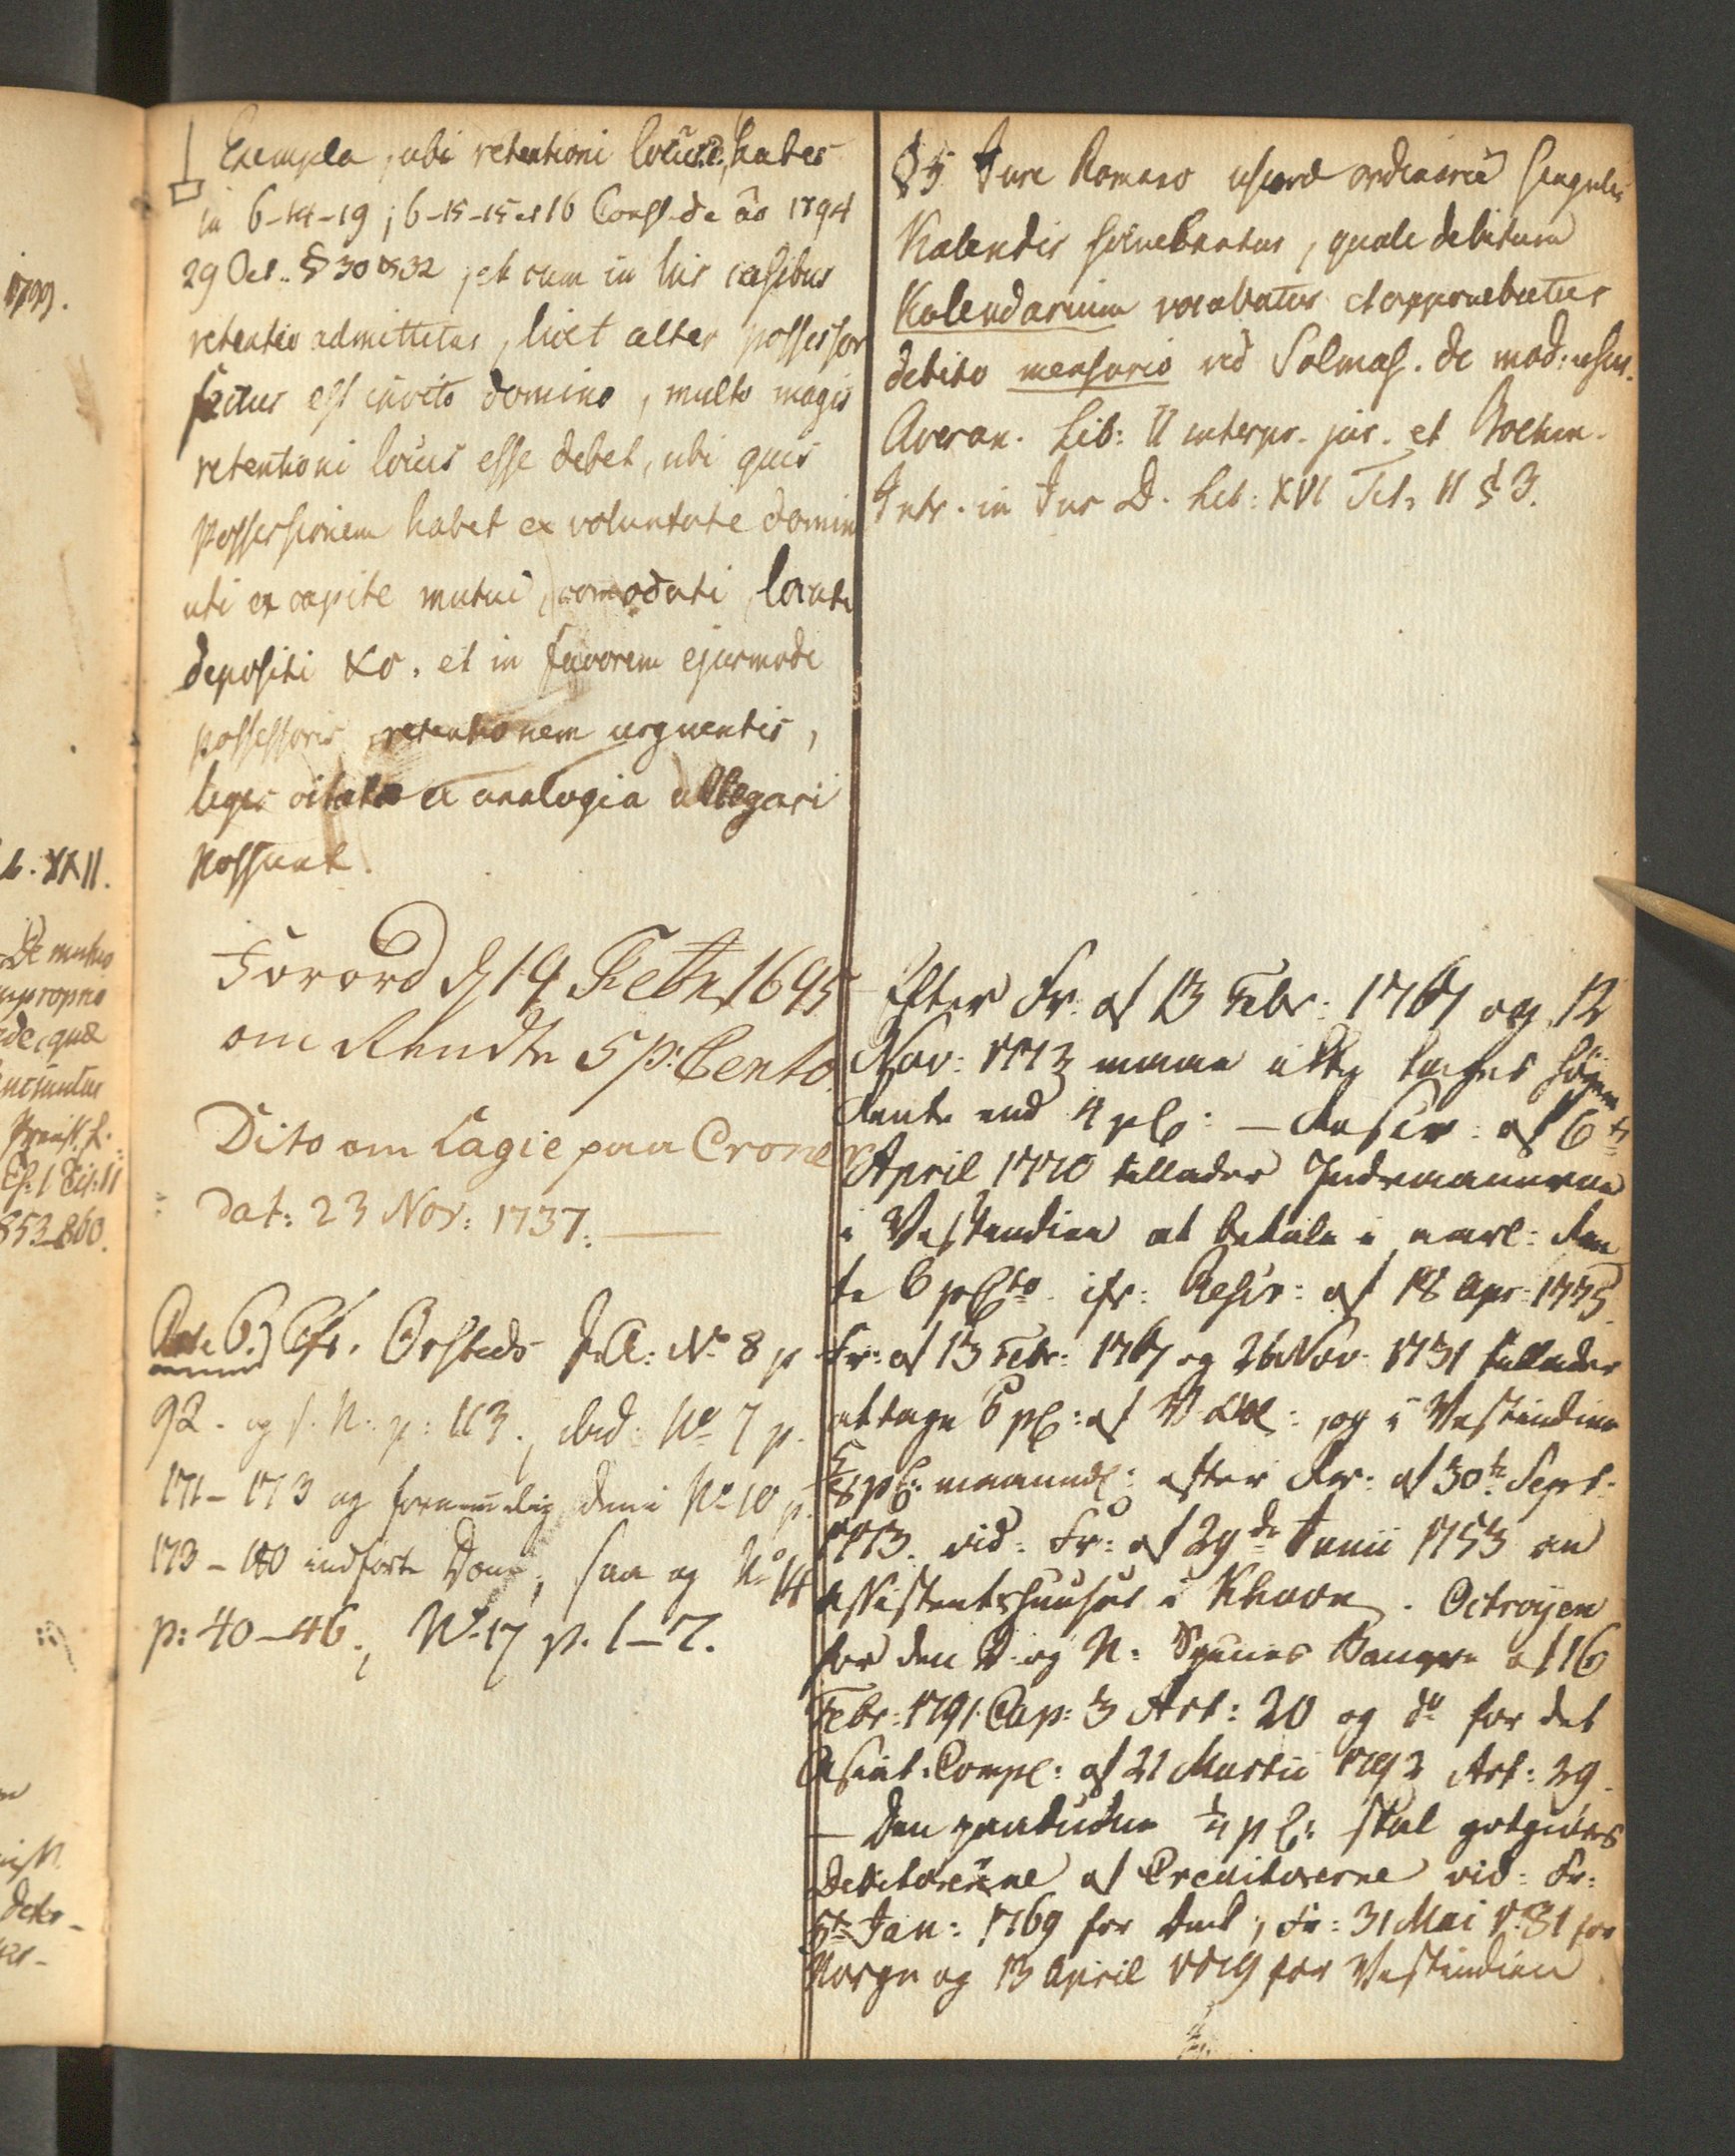 Exempla, ubi retentioni locus, habes
in 6-14-19; 6-15-15 et 16 Conf. de ao 1794
29 Oct. § 30 & 32, et cum in his casibus
retentio admittitur, licet alter possessor
factus est invito domino, multo magis
retentioni locus esse debet, ubi quis
possessionem habet ex voluntate domin
uti ex capite mutui, comodati, locati
depositi &c. et in favorem ejusmodi
possessoris retentionem urguentis,
leges citatæ ex analogia allegari
possunt.
Forord d 14 Febr 1695
om Rendte 5 p: Cento
Dito om Lagie paa Croner
dat: 23 Nov: 1737.
Cfr. Ørsteds J. A: No 8 p
92. og s. N: p: 113., ibid. No 7 p.
171-173 og fornemelig den i No 10 p.
173-180 indførte Dom, saa og No 14
p: 40-46., No 17 p. 1-7.
§ 5 Jure Romano usuræ ordinarie singulis
Kalendis solvebantur, quale debitum
Kalendarium vocabatur et opponebatur
debito mensurio vid Salmas. de mod: usur.
Averan. Lib: II interpr. jur. et Boehm.
Intr. in Jus D. Lib: XXII Tit. II § 3.
Efter Fr. af 13 Febr: 1767 og 12
Nov: 1773 maae ikke tages høyere
Rente end 4 pC: — Rescr: af 6te
April 1770 tillader Indvaanerne
i Vestindien at betale i aarl: Ren
te 6 pCto. cfr: Rescr: af 18 Apr: 1775.
Fr: af 13 Febr: 1767 og 26 Nov: 1731 tillader
at tage 6 pC: af, og i Vestindien
pC: maanedl: efter Rer: af 30te Sept.
1773. vid: Fr: af 29de Junii 1753 an
Assistentshuuset i Khavn. Octroyen
for den D. og N: Species Banque af 16
Febr: 1791. Cap: 3 Art: 20 og do for det
Asiat: Comp: af 21 Martii 1792 Art: 29.
— Den paabudne ¼ p C: skal godtgiøres
Debitorerne af Creditorerne vid: Fr:
5te Jan: 1769 for Dmk, Fr: 31 Mai 1781 for
Norge og 13 April for Vestindien
1799.
De mutuo
improprio
quæ
853-860.